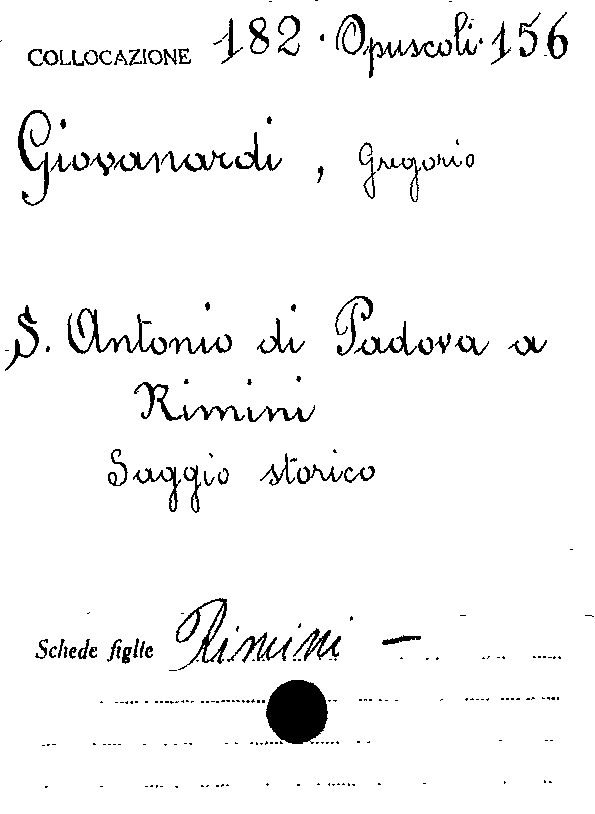 COLLOCAZIONE 182 · Opuscoli · 156
Giovanardi, Gregorio
S. Antonio di Padova a
Rimini
Saggio storico
Schede figlie Rimini —